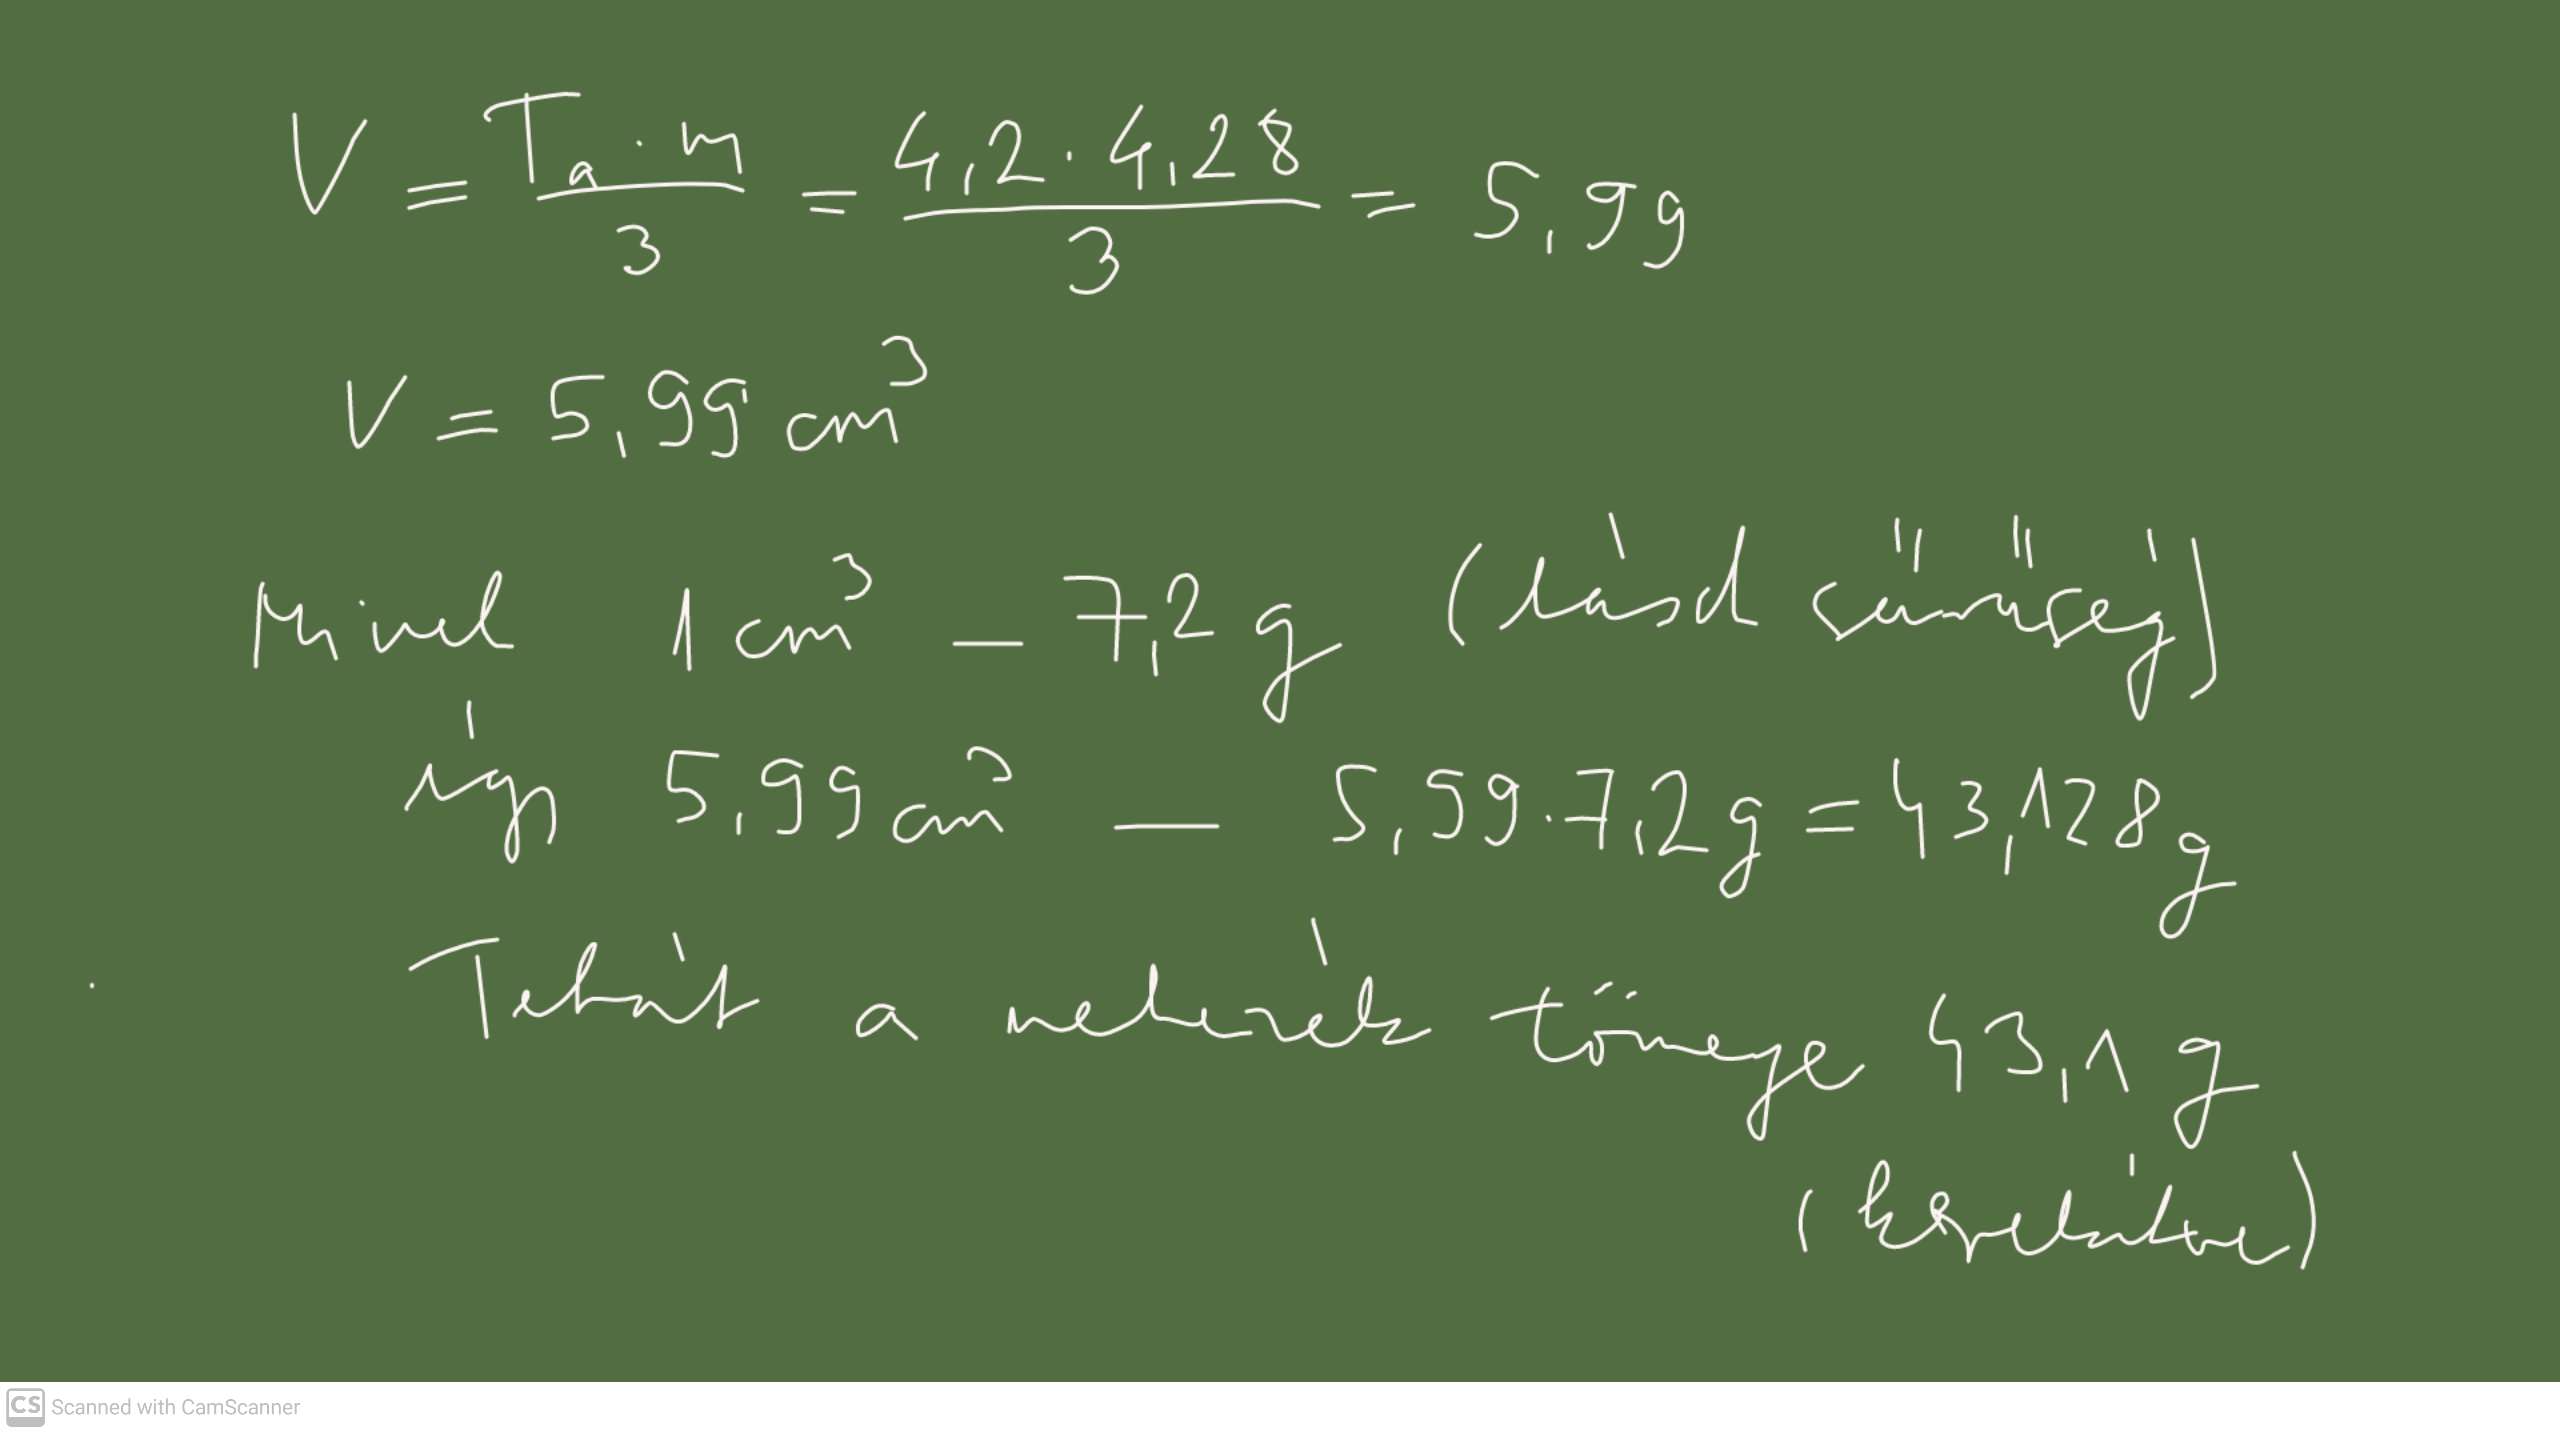 V = Ta · m / 3 = 4,2 · 4,28 / 3 = 5,99
V = 5,99 cm³
Mivel 1 cm³ – 7,2 g (lásd sűrűség)
így 5,99 cm³ – 5,99 · 7,2 g = 43,128 g
Tehát a nehezék tömege 43,1 g
(kerekítve)
CS Scanned with CamScanner